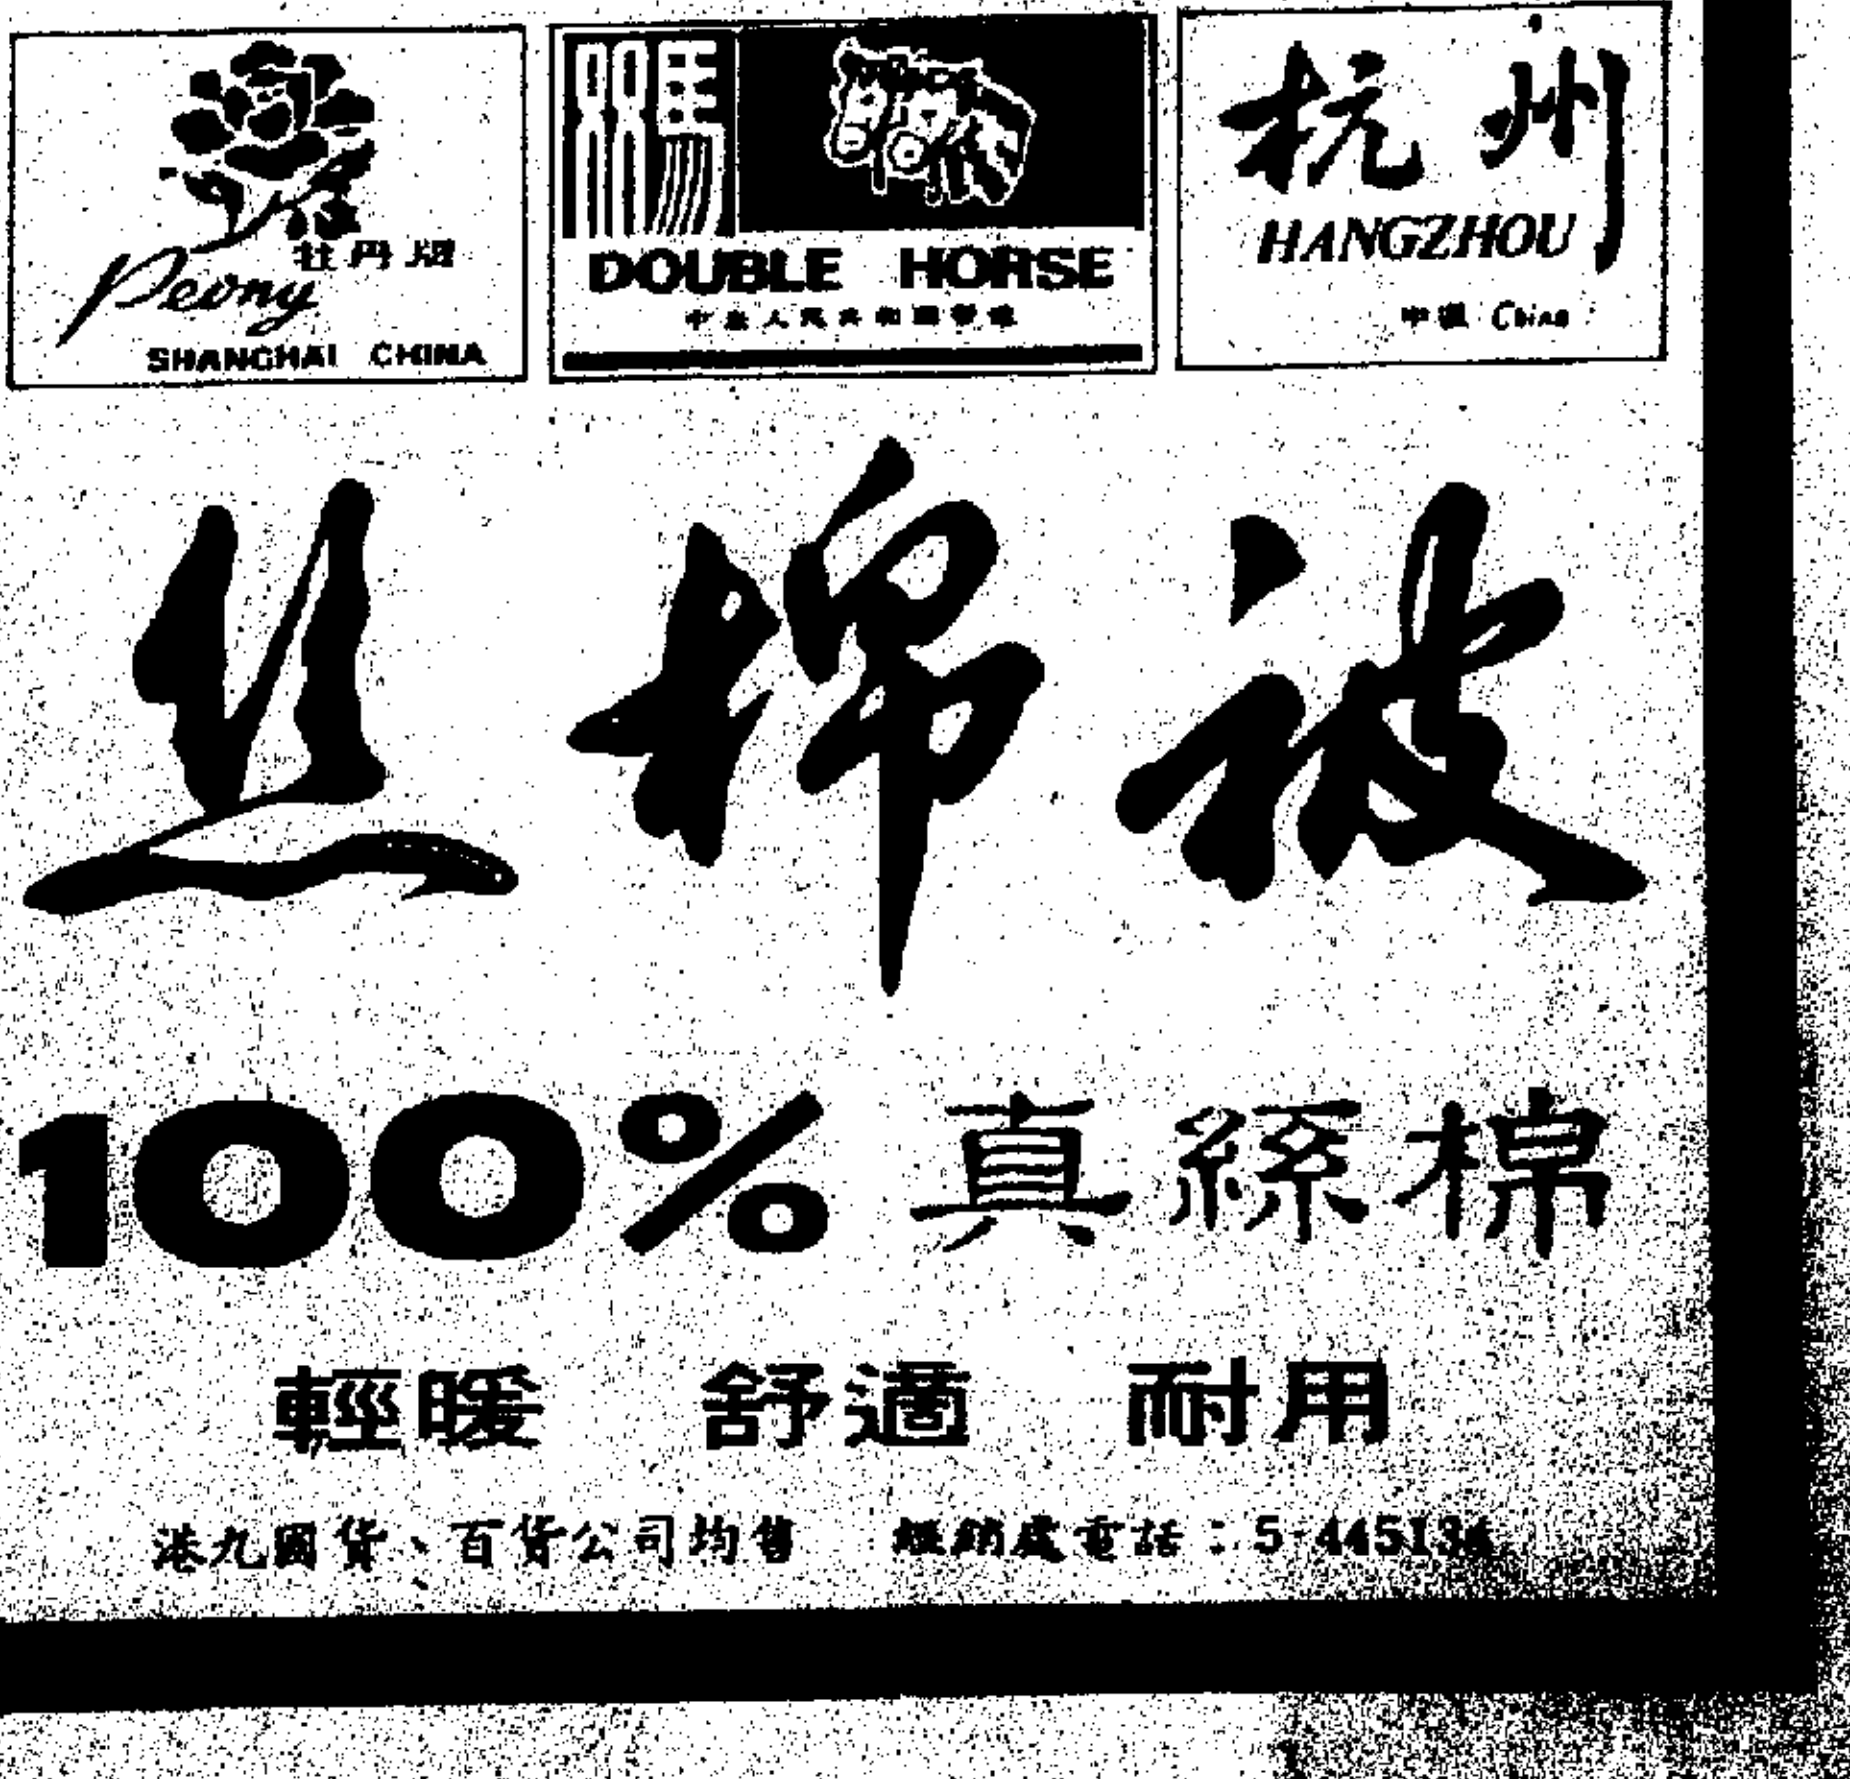 牡丹牌
Peony
SHANGHAI CHINA
双馬
DOUBLE HORSE
中華人民共和國製造
杭州
HANGZHOU
中國 China
丝棉被
100%真絲棉
輕暖 舒適 耐用
港九國貨、百貨公司均售 經銷處電話：5-445134